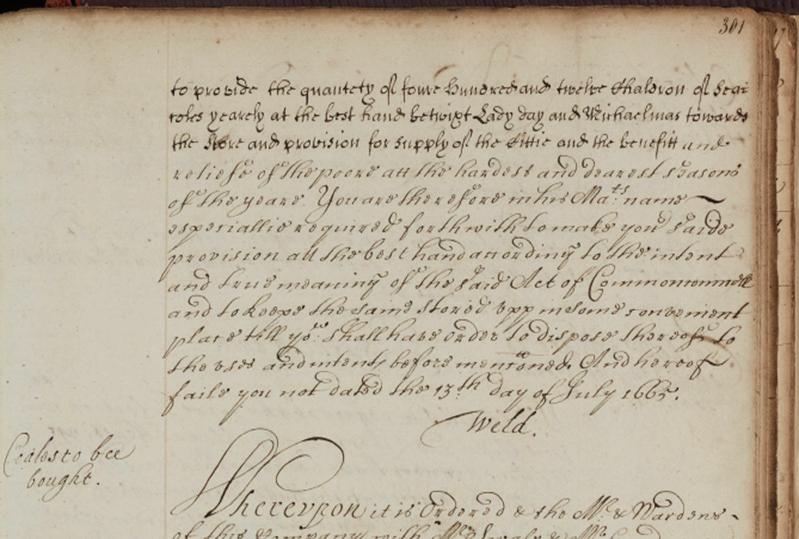 301
to provide the quantety of foure Hundred and twelve Chaldron of Sea
coles yearely at the best hand betwixt Lady day and Michaelmas towards
the Store and provision for supply of the Cittie and the benefitt and
reliefe of the poore att the hardest and dearest seasons
of the yeare. You are therefore in his Ma:ts name
especiallie required forthwith to make your saide
provision att the best hand according to the intent
and true meaning of the said Act of Common
and to keepe the same stored upp in some convenient
place till you shall have order to dispose thereof to
the uses and intents before mencioned. And hereof
faile you not dated the 13th day of July 1665.
Weld.
Coales to bee
bought.
Whereupon it is Ordered & the Mr: & Wardens
of this Company with Mr